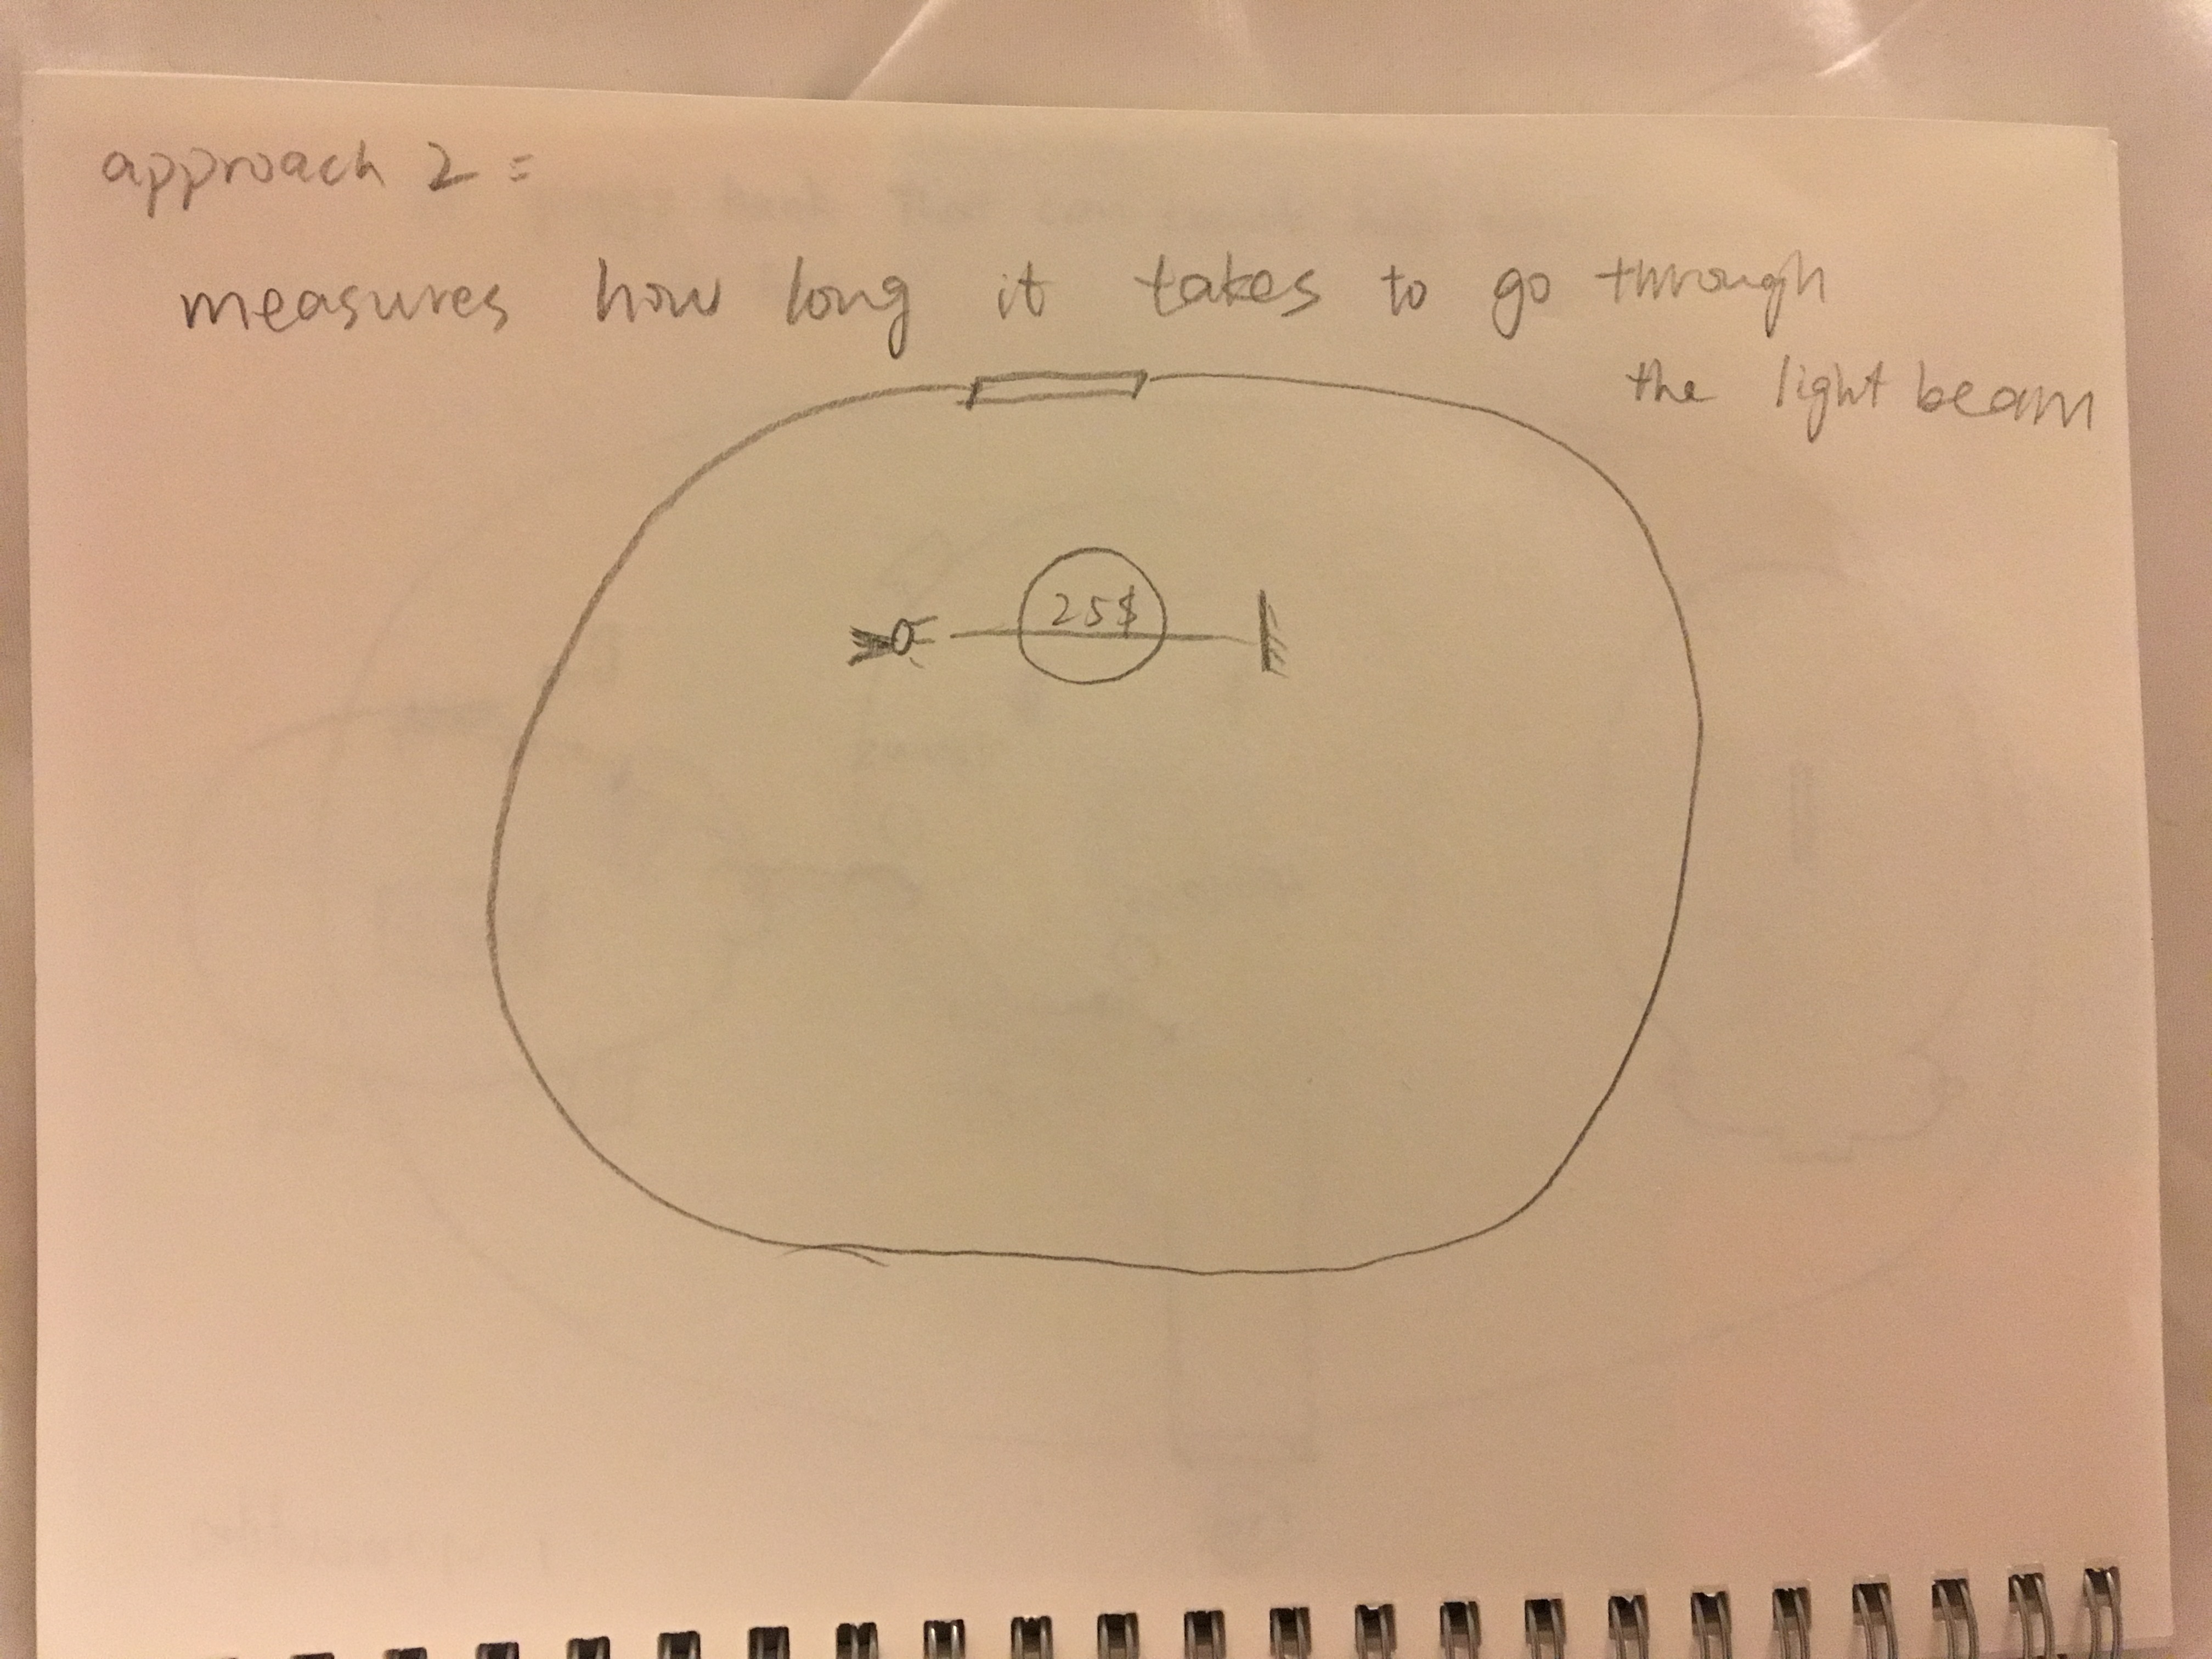 approach 2 =
measures how long it takes to go through
the light beam
25$